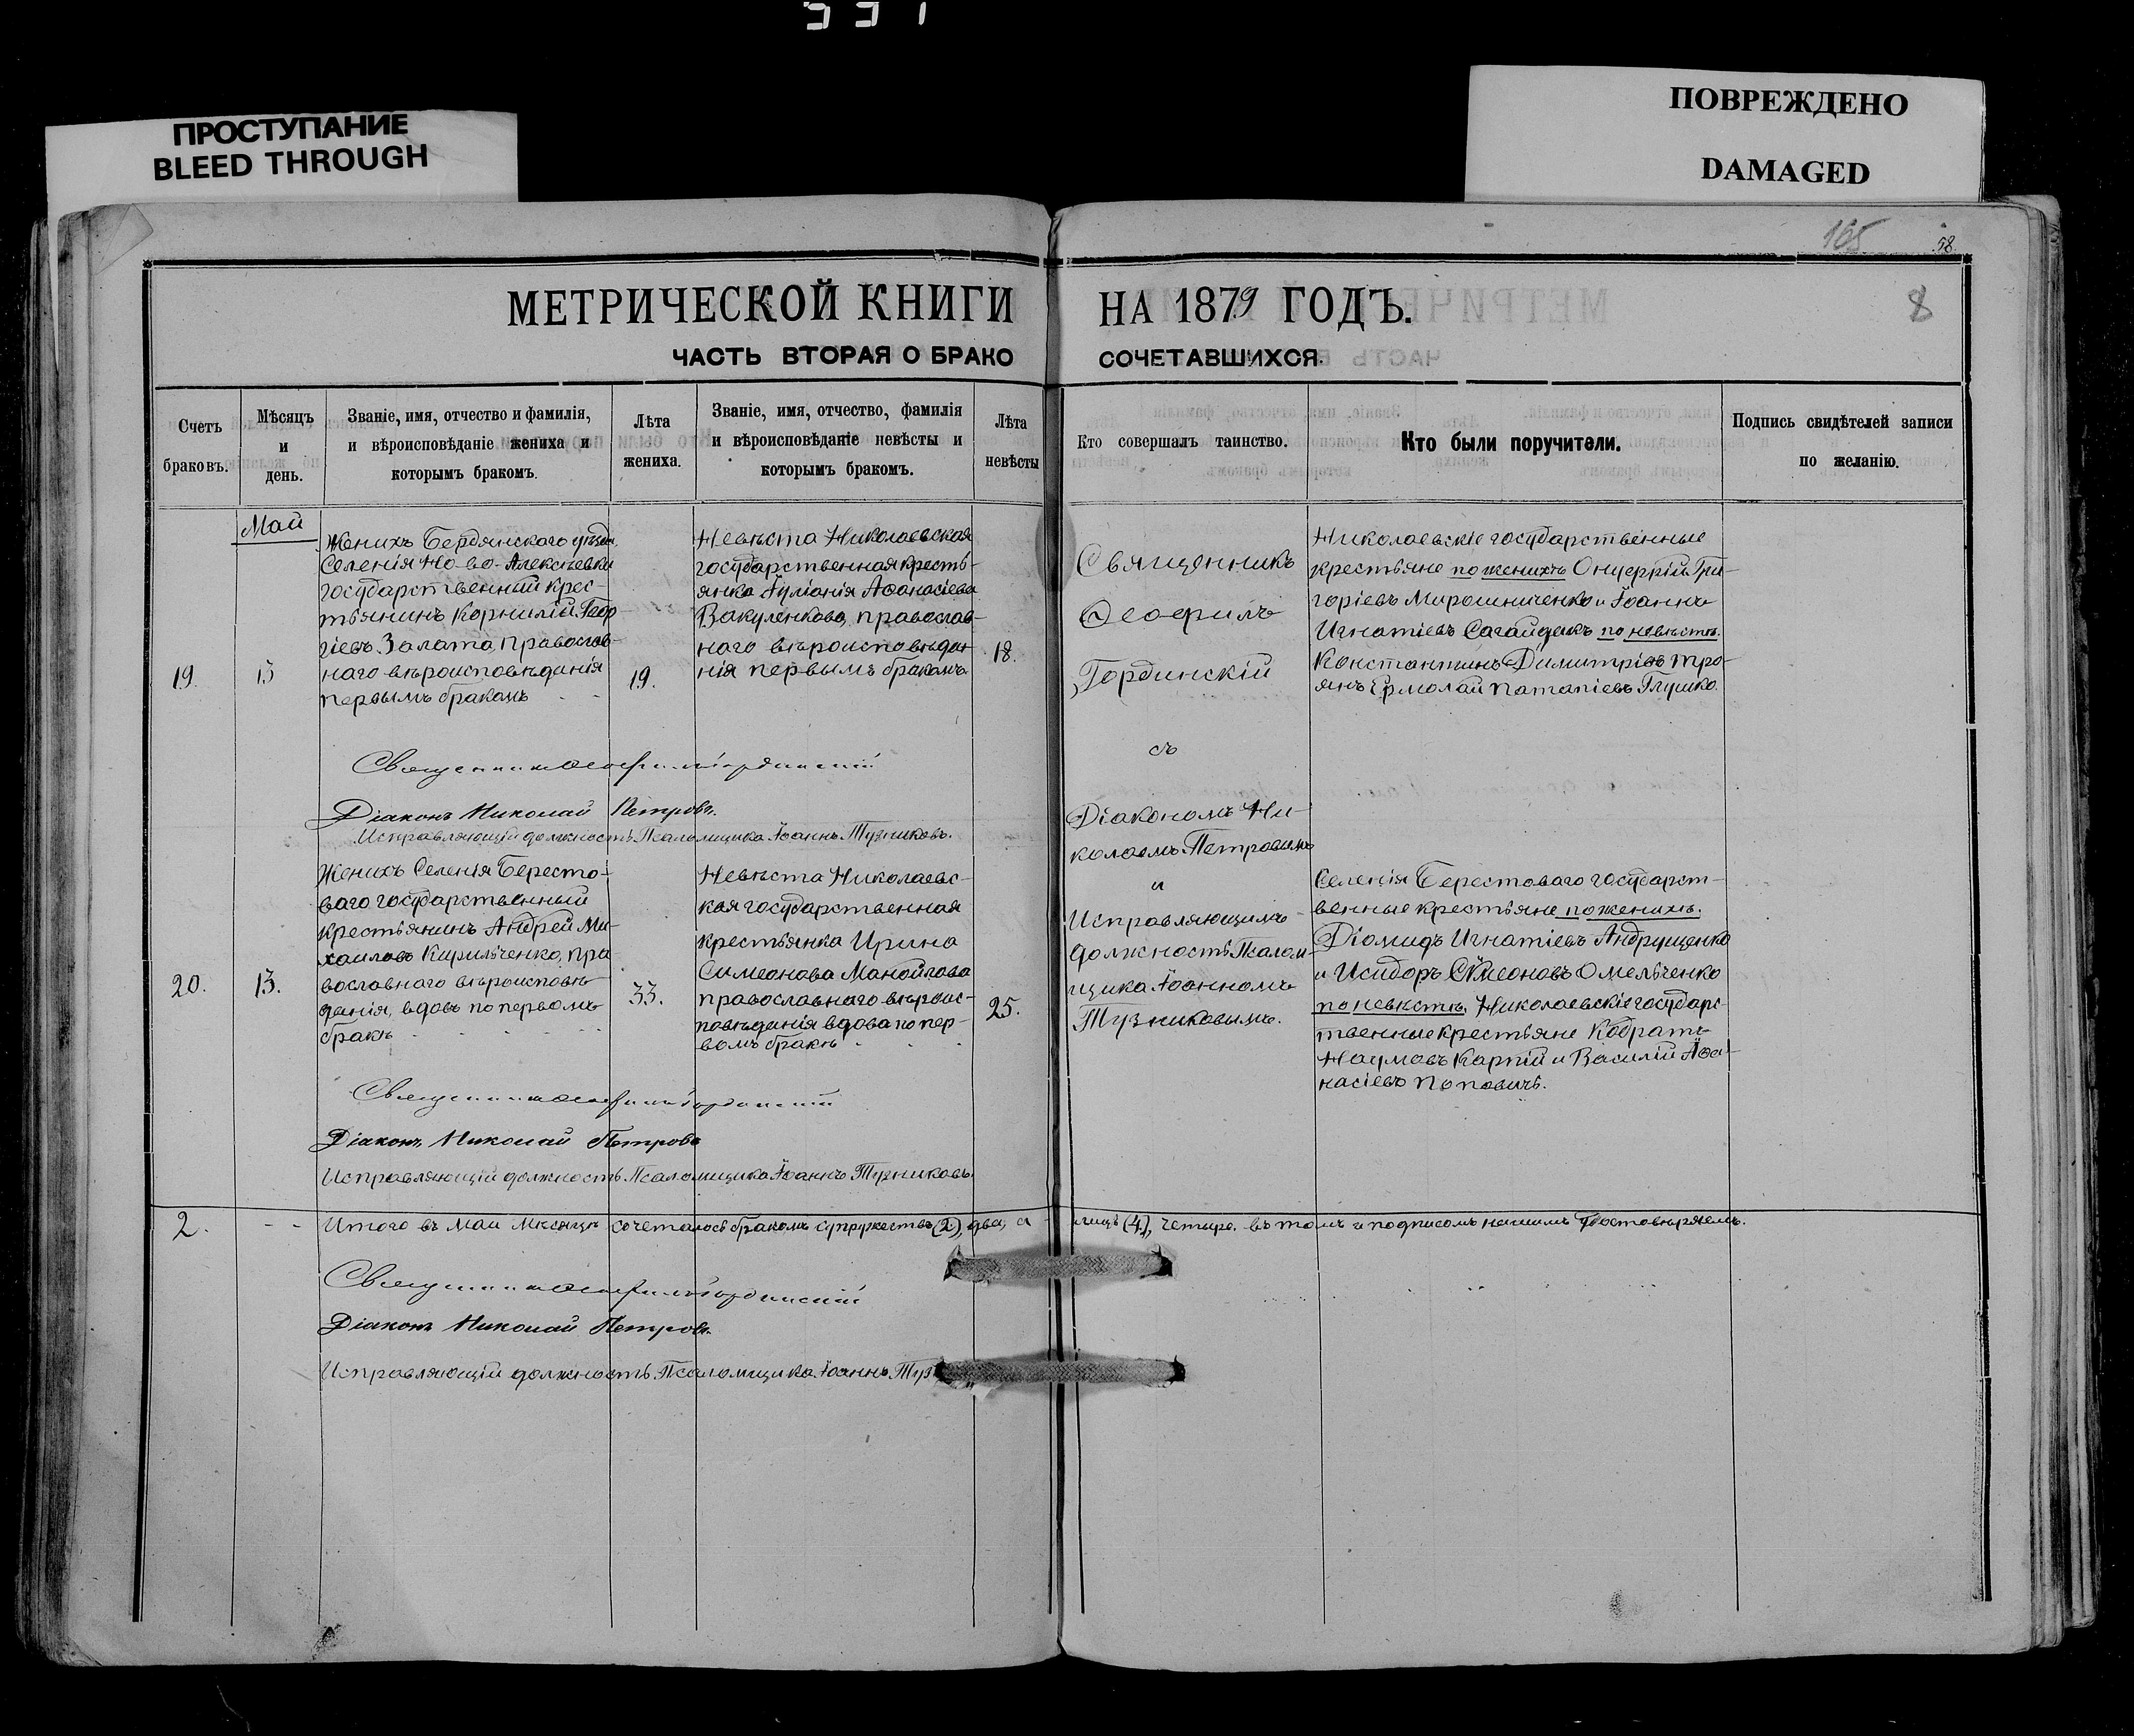 ПРОСТУПАНИЕ
BLEED THROUGH
ПОВРЕЖДЕНО
DAMAGED
165
58.
8
МЕТРИЧЕСКОЙ КНИГИ НА 1879 ГОДЪ.
ЧАСТЬ ВТОРАЯ О БРАКО СОЧЕТАВШИХСЯ.
Счетъ браковъ.
Мѣсяцъ и день.
Званіе, имя, отчество и фамилія, и вѣроисповѣданіе жениха и которымъ бракомъ.
Лѣта жениха.
Званіе, имя, отчество, фамилія и вѣроисповѣданіе невѣсты и которымъ бракомъ.
Лѣта невѣсты
Кто совершалъ таинство.
Кто были поручители.
Подпись свидѣтелей записи по желанію.
Май
19.
13
Женихъ Бердянскаго уѣзда
Селенія Но-во-Алексѣевки
государственный крес-
тьянинъ Корнилій Геор
гіевъ Залата, Православ-
наго вѣроисповѣданія
первымъ бракомъ
19.
Невѣста Николаевская
государственная кресть-
янка Іуліанія Аѳанасіева
Вакуленкова, православ-
наго вѣроисповѣдан
нія первымъ бракомъ
18.
Священникъ
Ѳеофилъ
Гординскій
съ
Діакономъ Ни-
колаемъ Петровымъ
и
Исправляющимъ
должность Псалом-
щика Іоанномъ
Тузниковымъ.
Николаевскіе государственные
крестьяне по женихѣ Онуфрій Гри-
горіевъ Мирошниченко и Іоаннъ
Игнатіевъ Сагайдакъ по невѣстѣ.
Константинъ Димитріевъ Тро-
янъ Ермолай Патапіевъ Глушко.
Священникъ Ѳеофилъ Гординскій
Діаконъ Николай Петровъ.
Исправляющій должность Псаломщика Іоаннъ Тузниковъ.
20.
13.
Женихъ Селенія Бересто-
ваго государственный
крестьянинъ Андрей Ми-
хаиловъ Кирильченко, пра-
вославнаго вѣроисповѣ-
данія, вдовъ по первомъ
бракѣ
33.
Невѣста Николаевс-
кая государственная
крестьянка Ирина
Симеонова Манойлова
православнаго вѣроис-
повѣданія вдова по пер-
вомъ бракѣ
25.
Селенія Берестоваго государст-
венные крестьяне по женихѣ.
Діомидъ Игнатіевъ Андрущенко
и Исидоръ Симеоновъ Омельченко
по невѣстѣ, Николаевскіе государс-
твенные крестьяне Кодратъ
Наумовъ Карпій и Василій Аѳа-
насіевъ Поповичъ.
Священникъ Ѳеофилъ Гординскій
Діаконъ Николай Петровъ
Исправляющій должность Псаломщика Іоаннъ Тузниковъ.
2.
Итого въ Маи Мѣсяцѣ сочеталось бракомъ супружествъ (2), два, а лицъ (4), четыре. въ томъ и подписомъ нашимъ достовѣряемъ.
Священникъ Ѳеофилъ Гординскій
Діаконъ Николай Петровъ.
Исправляющій должность Псаломщика Іоаннъ Туз